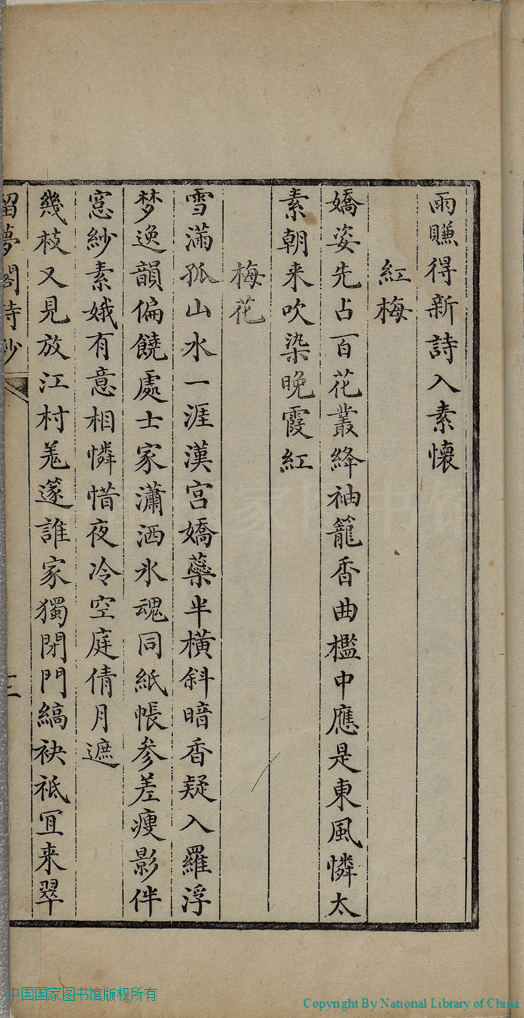 雨賺得新詩入素懷
紅梅
嬌姿先占百花叢絳袖籠香曲檻中應是東風憐太
素朝来吹染晚霞紅
梅花
雪滿孤山水一涯漢宫嬌蘂半横斜暗香疑入羅浮
梦逸韻偏饒處士家瀟洒氷魂同紙帳参差瘦影伴
窓紗素娥有意相憐惜夜冷空庭倩月遮
幾枝又見放江村羗篴誰家獨閉門縞袂祗冝来翠
留夢閣詩鈔
三
中国国家图书馆版权所有
Copyright By National Library of China